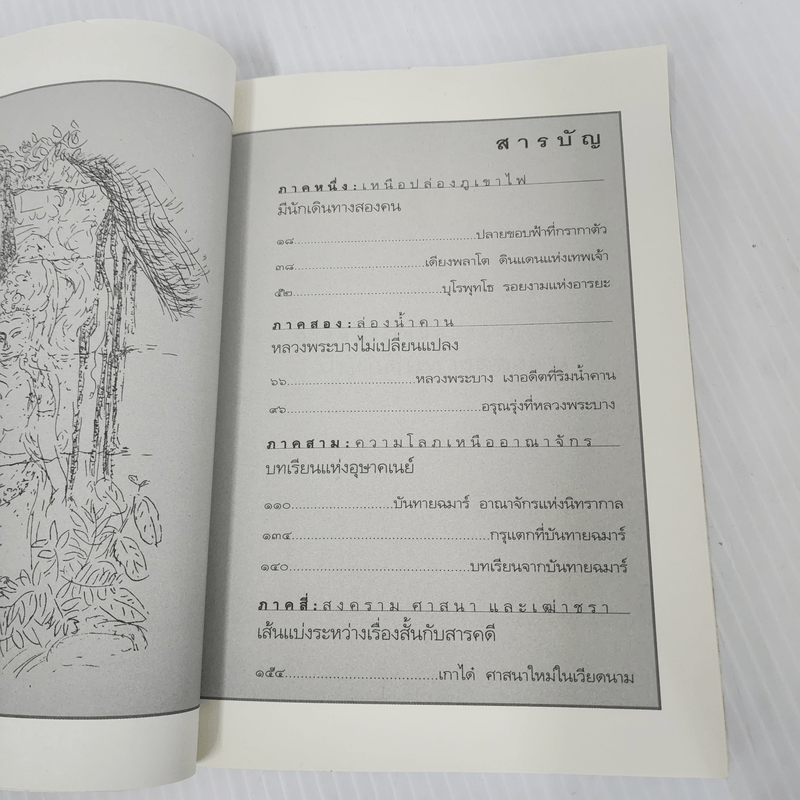 สารบัญ
ภาคหนึ่ง:เหนือปล่องภูเขาไฟ
มีนักเดินทางสองคน
๑๘......................................................ปลายขอบฟ้าที่กรากาตัว
๓๘.......................................เตียงพลาโต ดินแดนแห่งเทพเจ้า
๕๒............................................บุโรพุทโธ รอยงามแห่งอารยะ
ภาคสอง:ล่องน้ำคาน
หลวงพระบางไม่เปลี่ยนแปลง
๖๖......................................หลวงพระบาง เงาอดีตที่ริมน้ำคาน
๙๖..........................................................อรุณรุ่งที่หลวงพระบาง
ภาคสาม:ความโลภเหนืออาณาจักร
บทเรียนแห่งอุษาคเนย์
๑๑๐.............................บันทายฉมาร์ อาณาจักรแห่งนิทรากาล
๑๓๔.........................................................กรุแตกที่บันทายฉมาร์
๑๔๐....................................................บทเรียนจากบันทายฉมาร์
ภาคสี่:สงคราม ศาสนา และเฒ่าชรา
เส้นแบ่งระหว่างเรื่องสั้นกับสารคดี
๑๕๔...........................................เกาได๋ ศาสนาใหม่ในเวียดนาม